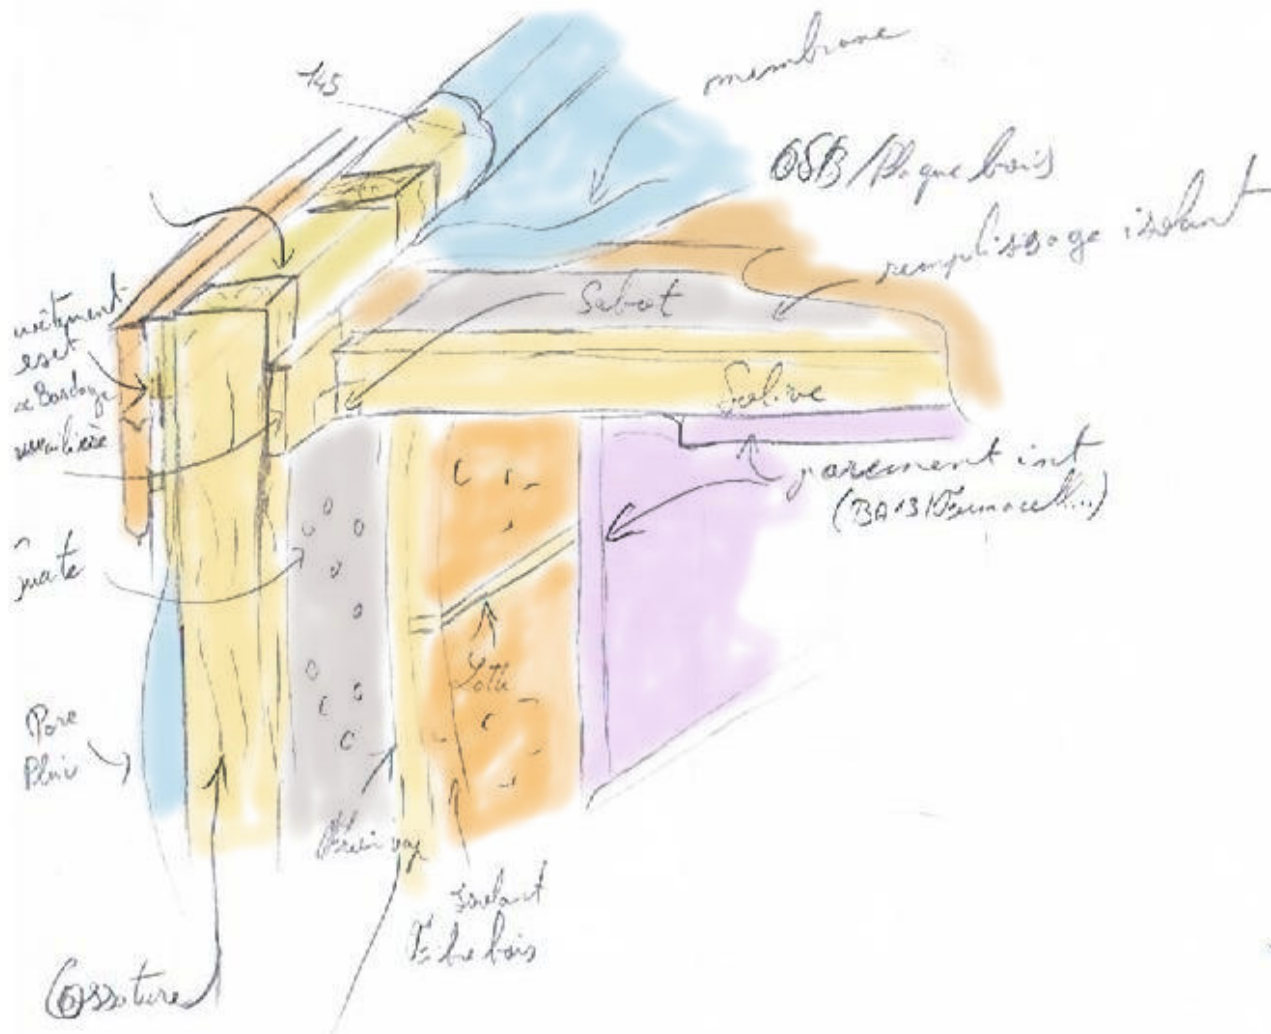 145
membrane
OSB / Plaque bois
remplissage isolant
Sabot
Solive
parement int
(BA13/Fermacell...)
ext
Bardage
Pare
Pluie
Frein vap
isolant
Fibre bois
Ossature